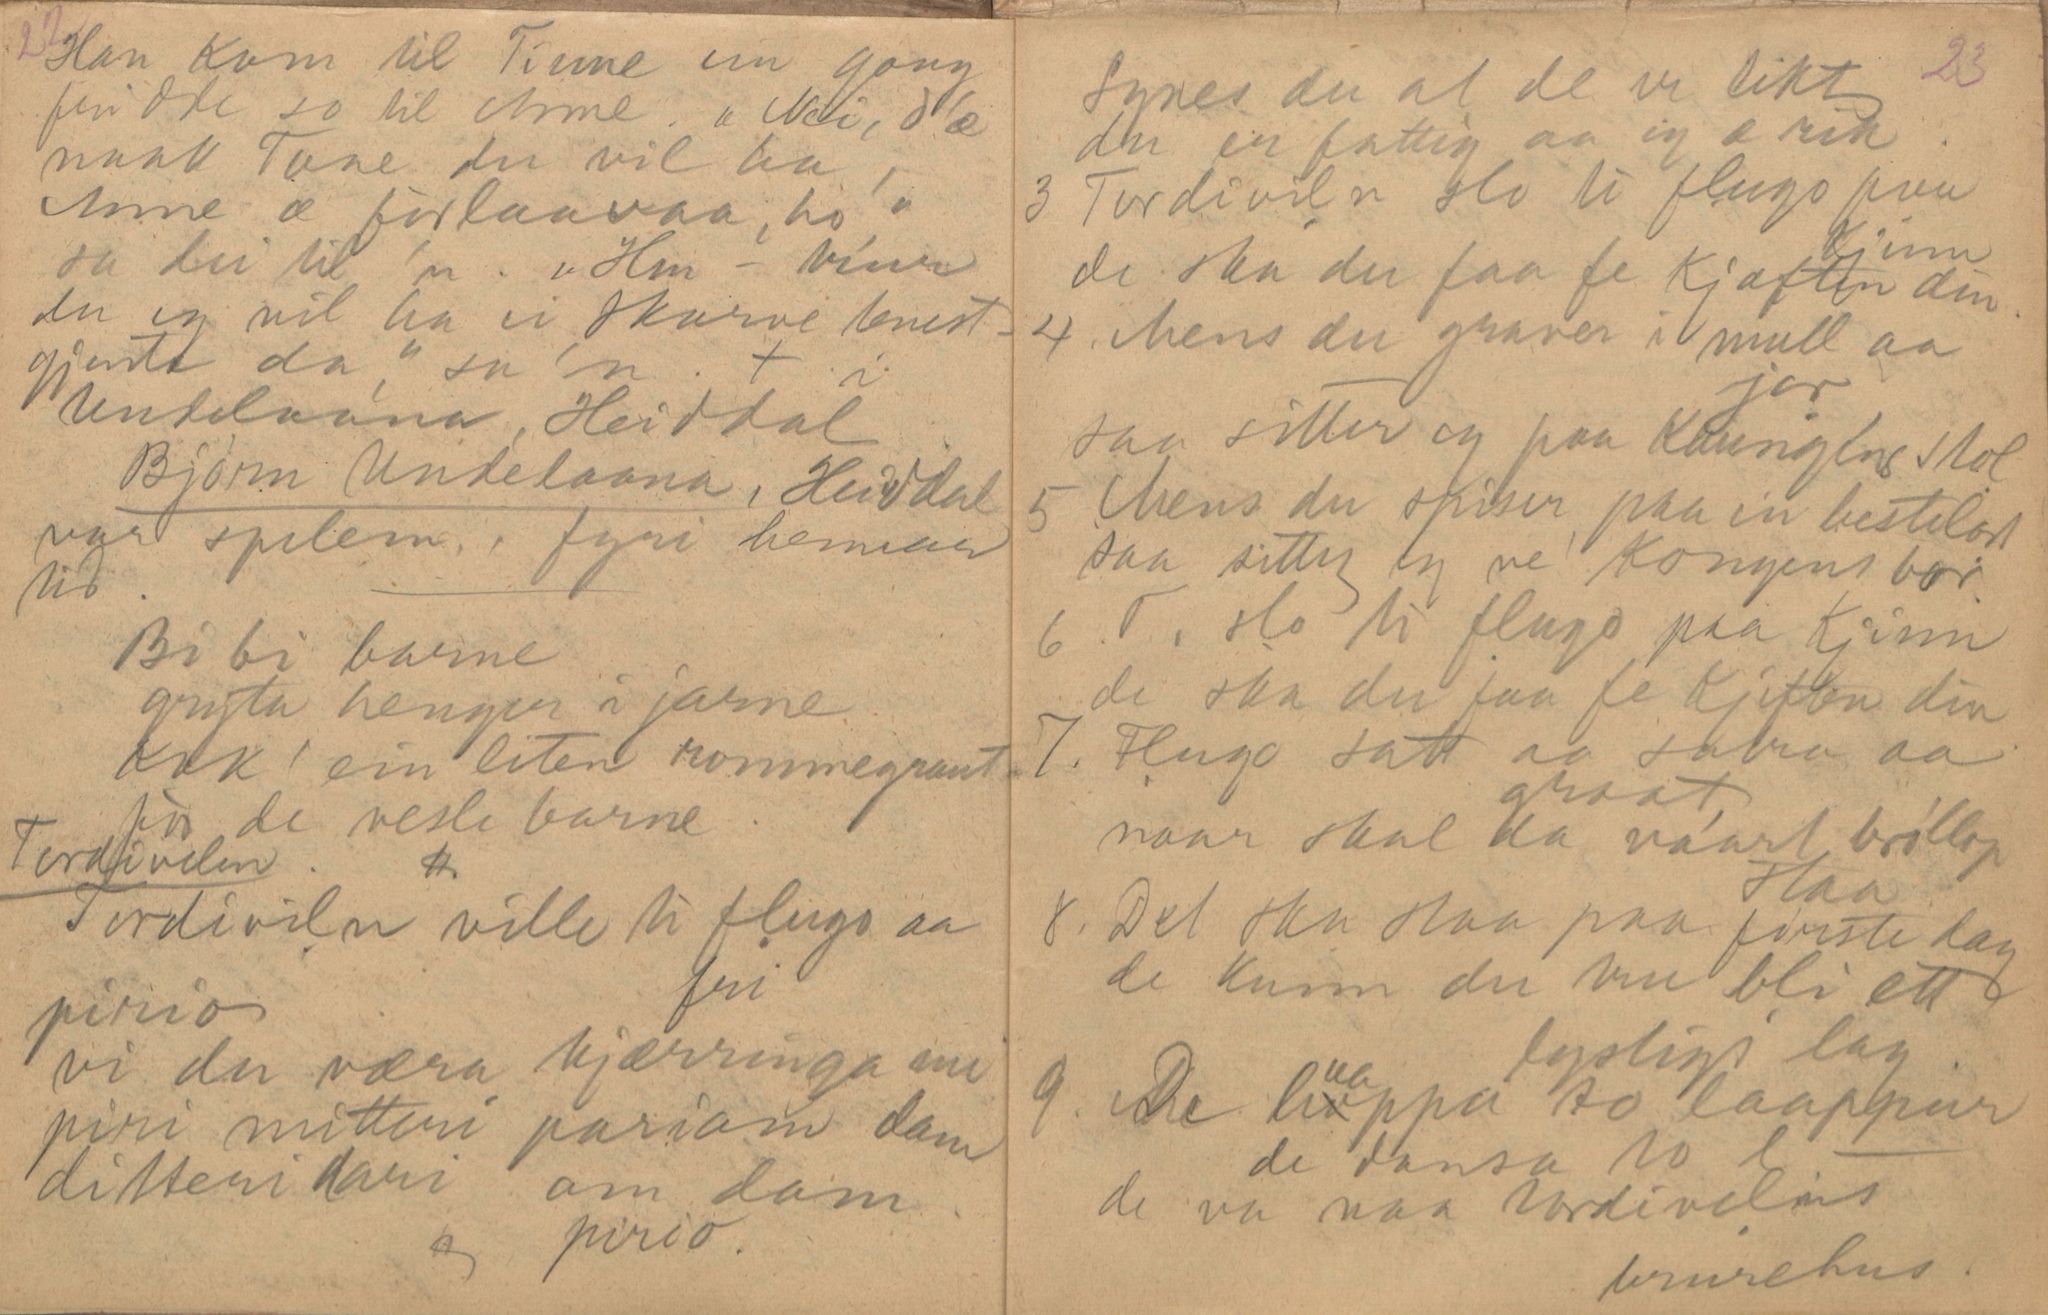 22
Han kom til Tinne ein gong
friddde so til Anne. "Nei, d'æ
naakk Tone du vil ha,
Anne æ forlaavaa, ho"
sa dei til 'n. "Hm –
du eg vil ha ei skarve
gjente da," sa 'n. + i
Undelaana, Heiddal
Bjørn Undelaana, Heiddal
var spelem. i fyri
tid.
Bi bi barne
gryta henger i jarne
kok' ein liten rommegraut
før de vesle barne.
Tordivelen.
Tordiviln ville ti flugo aa
fri
pirio
vi du væra kjærringa mi
piri mitteri pariom dam
ditteri dari om dam.
pirio.
23
Synes du at de er likt
du er fattig aa eg æ rik.
3 Tordiviln slo ti flugo paa
kjinn
de ska du faa fe kjæften din.
4. Mens du graver i mull aa
jor
saa sitter eg paa kaungens stol
5 Mens du spiser paa en
saa sitter eg ve' kongens bor.
6. T. slo ti flugo paa kjinn
de ska du faa fe kjeften din
7. Flugo satt aa
graat
naar skal da våart brøllop
staa
8. Det ska staa paa første dag
de kunn du bli ett
lystigt lag.
9. De laappa to laappur
de dansa to l
de va naa tordivelens
brurehus.